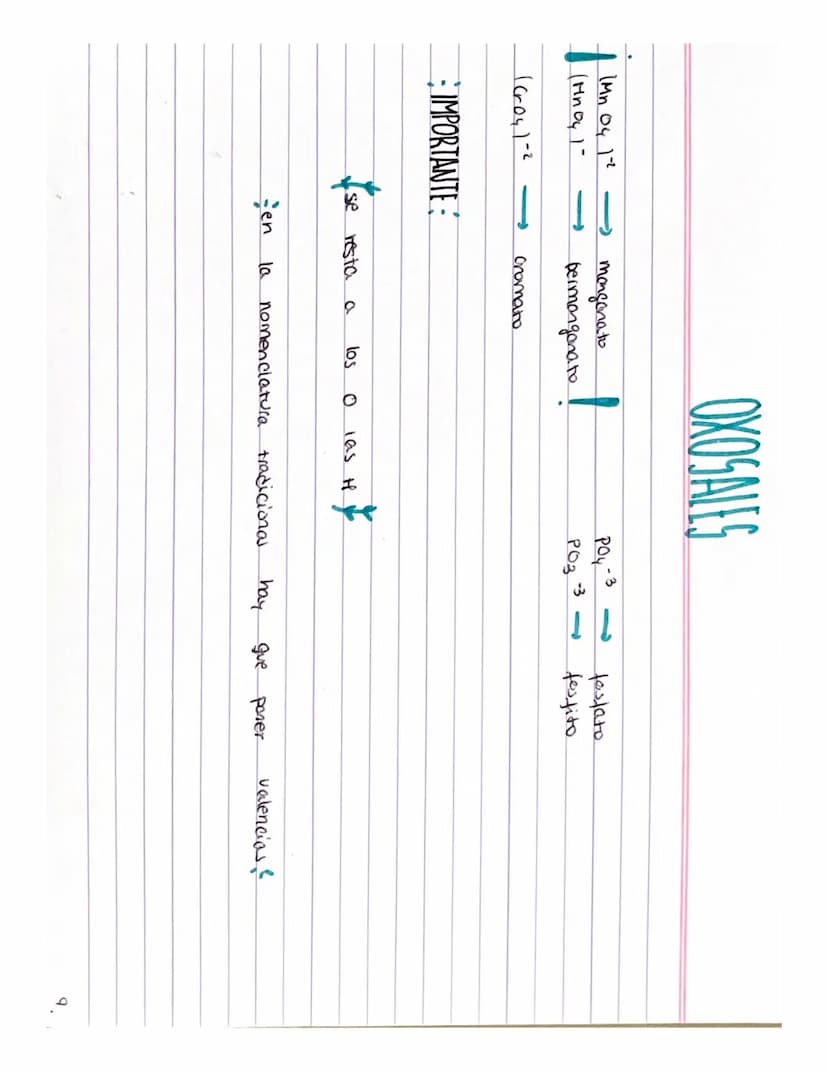 OXOSALES
(MnO4)-2 → manganato
(MnO4)- → permanganato
PO4-3 → fosfato
PO3-3 → fosfito
(CrO4)-2 → cromato
: IMPORTANTE :
se resta a los O las H
en la nomenclatura tradicional hay que poner valencias
9.